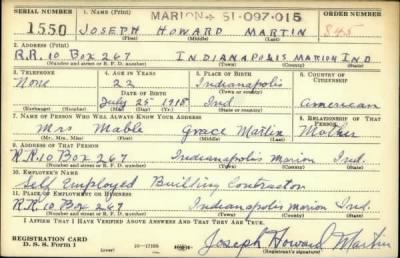 SERIAL NUMBER 1. NAME (Print) MARION- 51-097-015 ORDER NUMBER
1550 JOSEPH HOWARD MARTIN 845
(First) (Middle) (Last)
2. ADDRESS (Print)
R.R. 10 Box 267 INDIANAPOLIS MARION IND
(Number and street or R. F. D. number) (Town) (County) (State)
3. TELEPHONE 4. AGE IN YEARS 5. PLACE OF BIRTH 6. COUNTRY OF CITIZENSHIP
None 22 Indianapolis
DATE OF BIRTH (Town) (County)
July 25 1918 Ind. American
(Exchange) (Number) (Mo.) (Day) (Yr.) (State or country)
7. NAME OF PERSON WHO WILL ALWAYS KNOW YOUR ADDRESS 8. RELATIONSHIP OF THAT PERSON
Mrs Mable Grace Martin Mother
(Mr., Mrs., Miss) (First) (Middle) (Last)
9. ADDRESS OF THAT PERSON
R.R. 10 Box 267 Indianapolis Marion Ind.
(Number and street or R. F. D. number) (Town) (County) (State)
10. EMPLOYER'S NAME
Self Employed Building Contractor
11. PLACE OF EMPLOYMENT OR BUSINESS
R.R. 10 Box 267 Indianapolis Marion Ind.
(Number and street or R. F. D. number) (Town) (County) (State)
I AFFIRM THAT I HAVE VERIFIED ABOVE ANSWERS AND THAT THEY ARE TRUE.
REGISTRATION CARD
D. S. S. FORM 1 Joseph Howard Martin
(Registrant's signature)